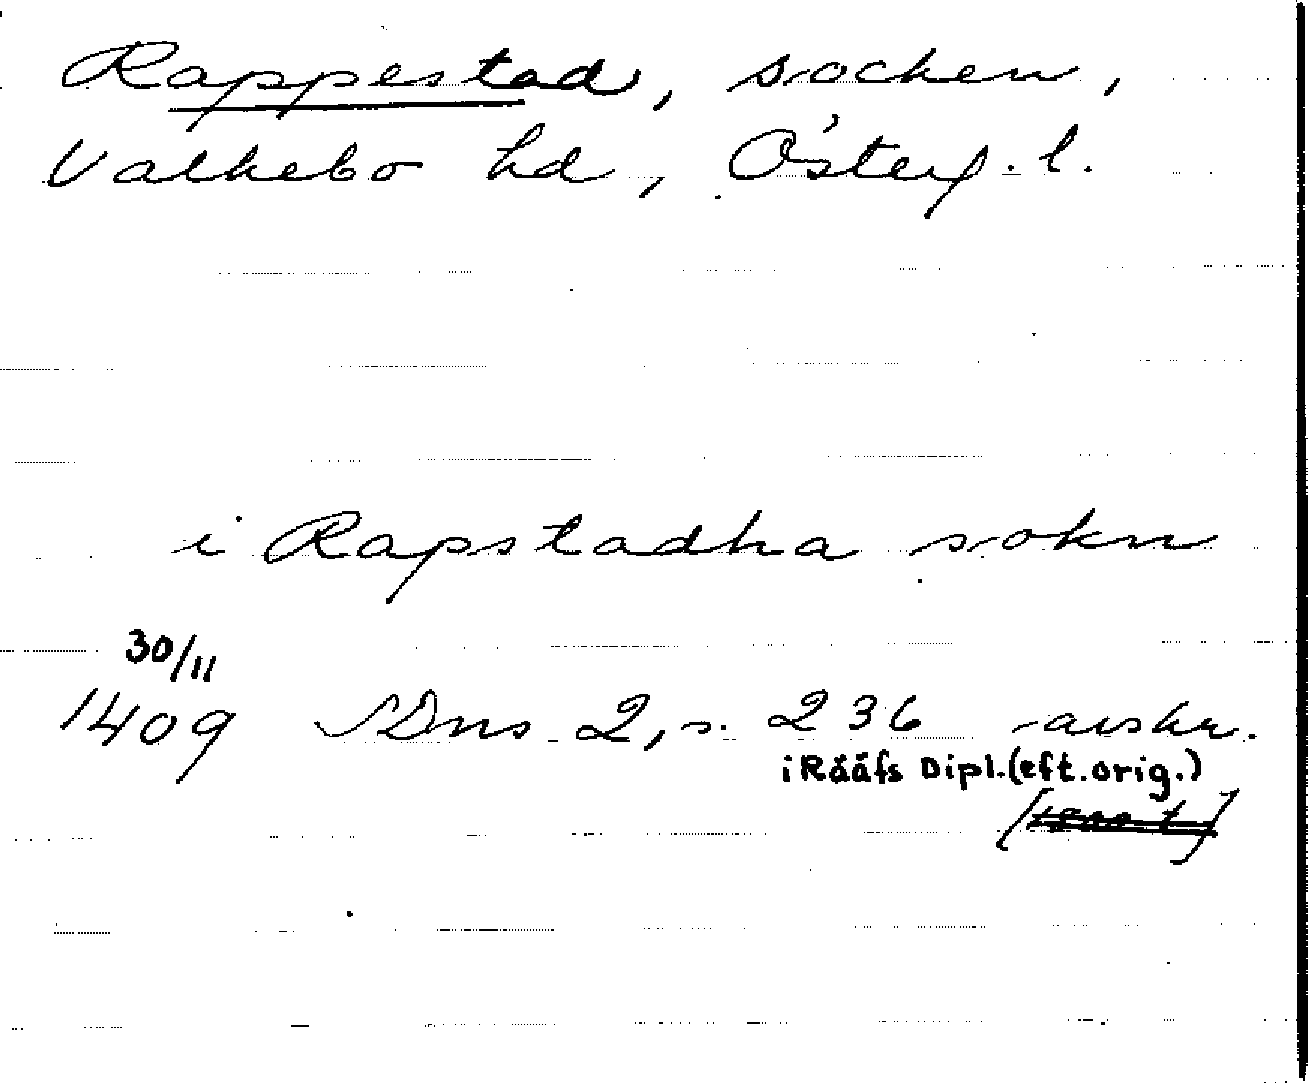 Rappestad, socken,
Valkebo hd, Österg. l.
i Rapstadha sokn
30/11
1409 SDns 2, s. 236 avskr.
i Rääfs Dipl. (eft. orig.)